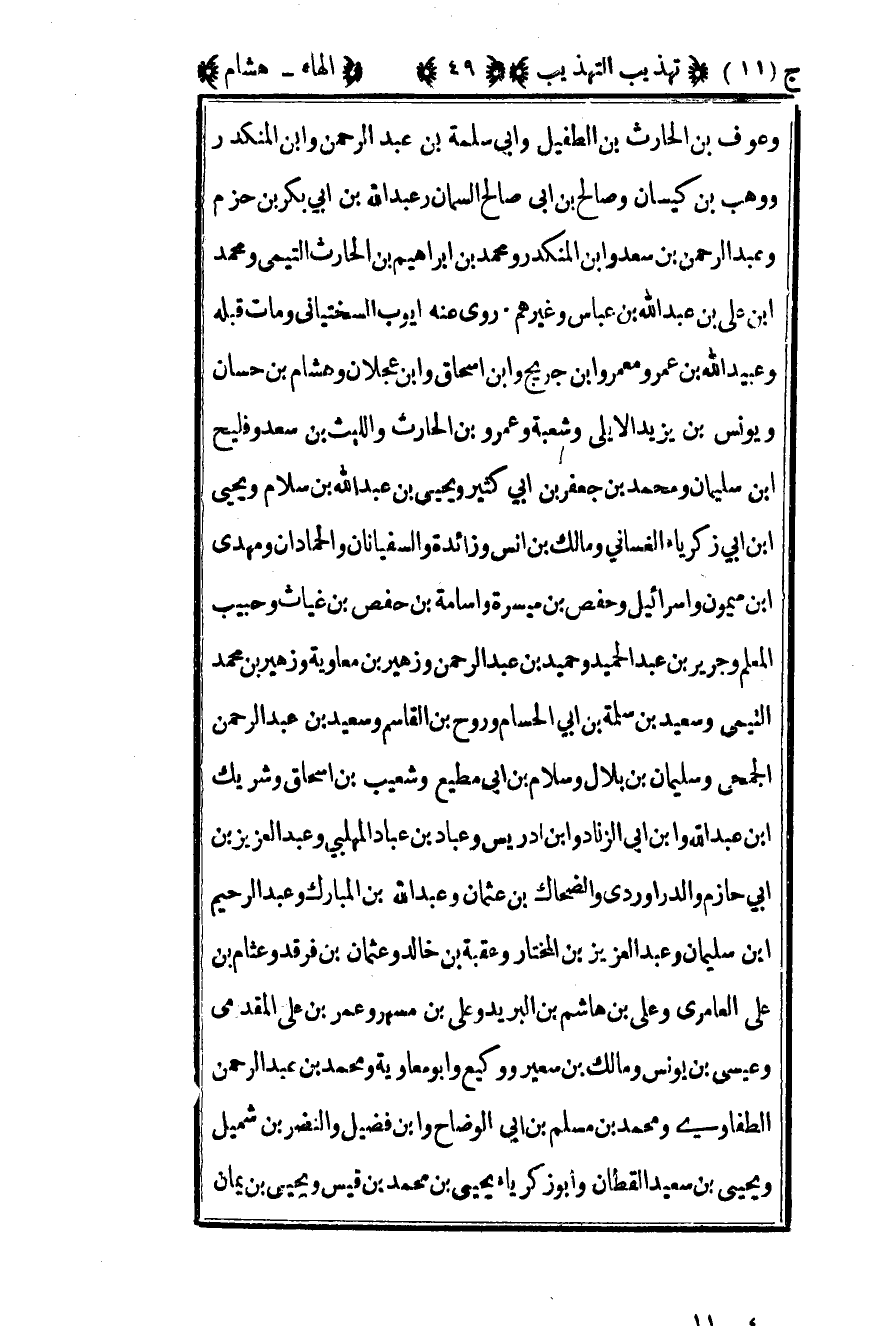 ج (١١) ﴿ تهذيب التهذيب ﴾ ﴿ ٤٩ ﴾ ﴿ الهاء ـ هشام ﴾
وعوف بن الحارث بن الطفيل وابي سلمة بن عبد الرحمن وابن المنكدر
ووهب بن كيسان وصالح بن ابى صالح السمان وعبدالله بن ابي بكر بن حزم
وعبدالرحمن بن سعد وابن المنكدر ومحمد بن ابراهيم بن الحارث التيمى ومحمد
ابن على بن عبدالله بن عباس وغيرهم · روى عنه ايوب السختيانى ومات قبله
وعبيدالله بن عمر ومعمر وابن جريج وابن اسحاق وابن عجلان وهشام بن حسان
ويونس بن يزيد الايلى وشعبة وعمرو بن الحارث والليث بن سعد وفليح
ابن سليمان ومحمد بن جعفر بن ابي كثير ويحيى بن عبدالله بن سلام ويحيى
ابن ابي زكرياء الغساني ومالك بن انس وزائدة والسفيانان والحمادان ومهدى
ابن ميمون واسرائيل وحفص بن ميسرة واسامة بن حفص بن غياث وحبيب
المعلم وجرير بن عبدالحميد وحميد بن عبدالرحمن وزهير بن معاوية وزهير بن محمد
التيمى وسعيد بن سلمة بن ابي الحسام وروح بن القاسم وسعيد بن عبدالرحمن
الجمحى وسليمان بن بلال وسلام بن ابى مطيع وشعيب بن اسحاق وشريك
ابن عبدالله وابن ابى الزناد وابن ادريس وعباد بن عباد المهلبي وعبدالعزيز بن
ابي حازم والدراوردى والضحاك بن عثمان وعبدالله بن المبارك وعبدالرحيم
ابن سليمان وعبدالعزيز بن المختار وعقبة بن خالد وعثمان بن فرقد وعثام بن
على العامرى وعلى بن هاشم بن البريد وعلى بن مسهر وعمر بن على المقدمى
وعيسى بن يونس ومالك بن سعير ووكيع وابو معاوية ومحمد بن عبدالرحمن
الطفاوي ومحمد بن مسلم بن ابي الوضاح وابن فضيل والنضر بن شميل
ويحيى بن سعيد القطان وأبو زكرياء يحيى بن محمد بن قيس ويحيى بن يمان